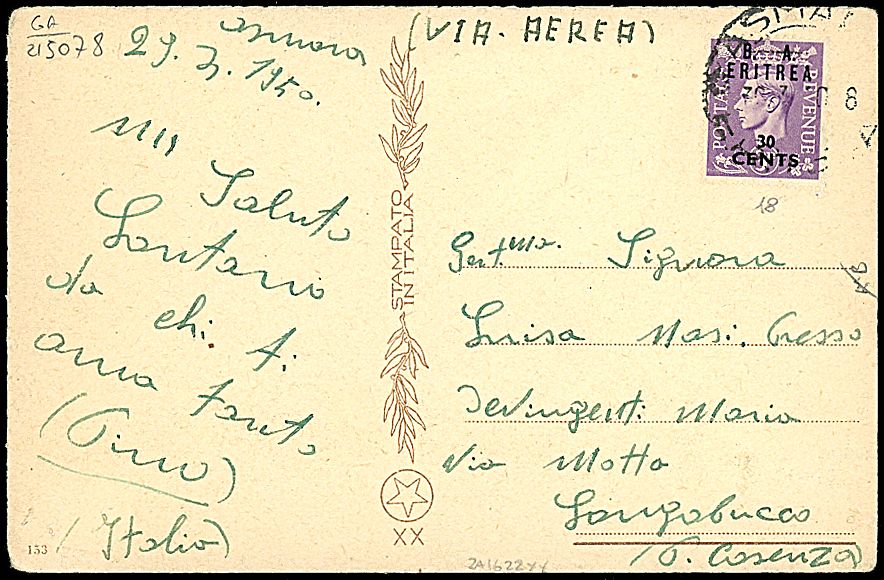 GA
215078
Asmara
29.3.1950.
(VIA. AEREA)
un
Saluto
Lontano
da chi ti
ama tanto
(Pino)
(Italia)
153
STAMPATO
IN ITALIA
XX
ASMARA
B. A.
ERITREA
POSTAGE
REVENUE
30
CENTS
18
Gert.ma. Signora
Luisa Masi. Presso
Devingenti Maria
Via Motta
Longobucco
(P. Cosenza)